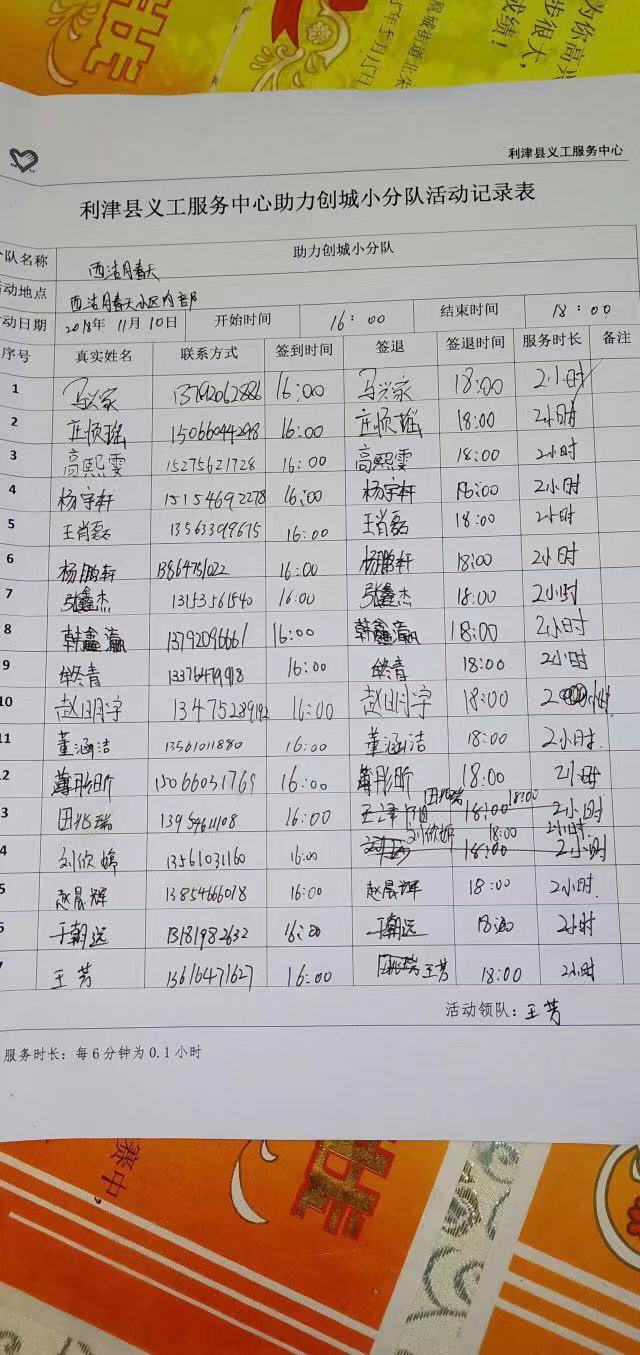 为你高兴
步很大,
成绩!
利津县义工服务中心
利津县义工服务中心助力创城小分队活动记录表
分队名称 西洁月春天 助力创城小分队
活动地点 西洁月春天小区内部
活动日期 2018年11月10日 开始时间 16:00 结束时间 18:00
序号 真实姓名 联系方式 签到时间 签退 签退时间 服务时长 备注
1 马兴家 13792062886 16:00 马兴家 18:00 2小时
2 庄顺瑶 15066044298 16:00 庄顺瑶 18:00 2小时
3 高熙雯 15275621728 16:00 高熙雯 18:00 2小时
4 杨宇轩 15154692278 16:00 杨宇轩 18:00 2小时
5 王肖磊 13563399615 16:00 王肖磊 18:00 2小时
6 杨鹏轩 13864751022 16:00 杨鹏轩 18:00 2小时
7 张鑫杰 13153561540 16:00 张鑫杰 18:00 2小时
8 韩鑫瀛 13792096661 16:00 韩鑫瀛 18:00 2小时
9 终青 13376479918 16:00 终青 18:00 2小时
10 赵明宇 13475289192 16:00 赵明宇 18:00 2小时
11 董涵洁 13561011880 16:00 董涵洁 18:00 2小时
2 薄彤昕 15066031769 16:00 薄彤昕 18:00 2小时
3 田兆瑞 13954611108 16:00 田兆瑞 18:00 2小时
4 刘欣婷 13561031160 16:00 刘欣婷 18:00 2小时
5 赵晨辉 13854666018 16:00 赵晨辉 18:00 2小时
6 于朝远 13181982632 16:00 于朝远 18:00 2小时
7 王芳 13616471627 16:00 王芳 18:00 2小时
活动领队:王芳
服务时长:每6分钟为0.1小时
赛中,